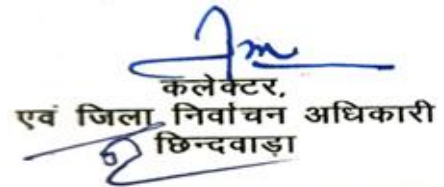 कलेक्टर,
एवं जिला निर्वाचन अधिकारी
छिन्दवाड़ा